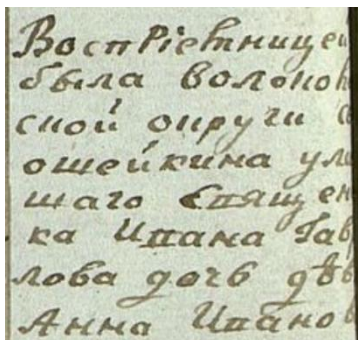 Воспріемницеи
была волоко
ской округи с
ошейкина уме
шаго священ
ка Ивана Гав
лова дочь дѣв
Анна Иванов